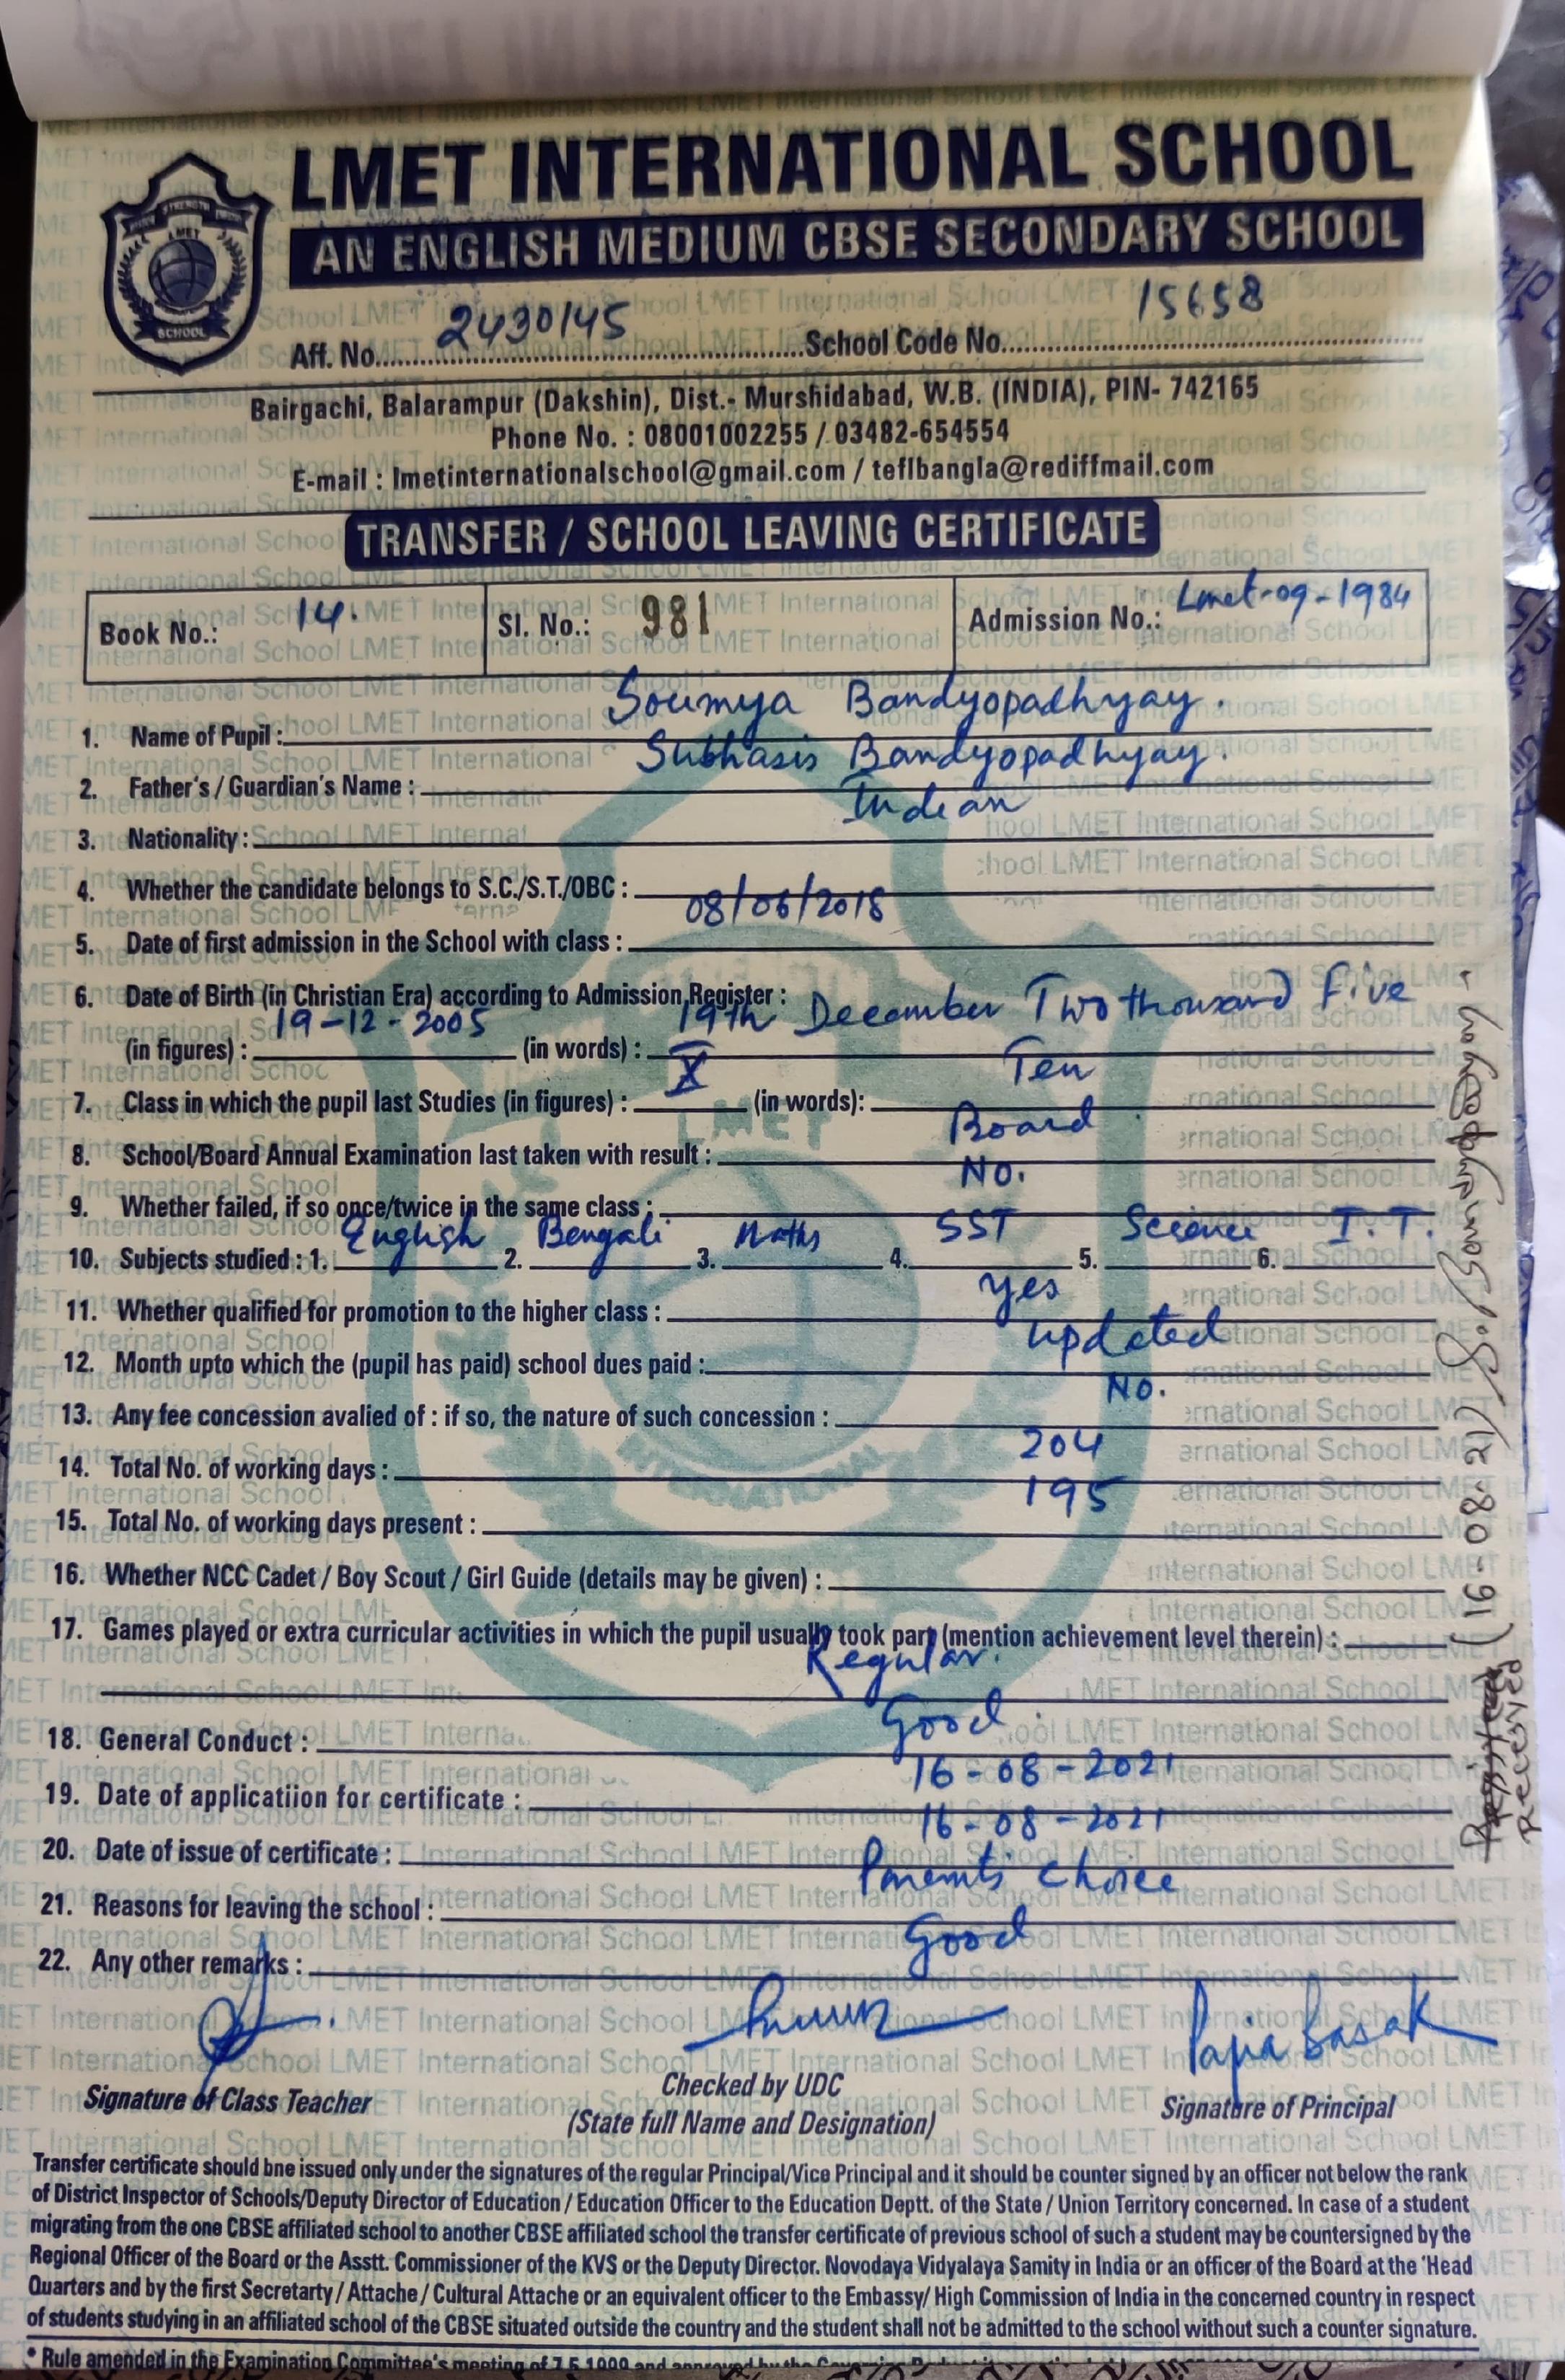 LMET INTERNATIONAL SCHOOL
AN ENGLISH MEDIUM CBSE SECONDARY SCHOOL
LMET
SCHOOL
Aff. No. 2430145 School Code No. 15658
Bairgachi, Balarampur (Dakshin), Dist.- Murshidabad, W.B. (INDIA), PIN- 742165
Phone No. : 08001002255 / 03482-654554
E-mail : lmetinternationalschool@gmail.com / teflbangla@rediffmail.com
TRANSFER / SCHOOL LEAVING CERTIFICATE
Book No.: 14. Sl. No.: 981 Admission No.: Lmet-09-1984
1. Name of Pupil : Soumya Bandyopadhyay.
2. Father's / Guardian's Name : Subhasis Bandyopadhyay.
3. Nationality : Indian
4. Whether the candidate belongs to S.C./S.T./OBC :
5. Date of first admission in the School with class : 08/06/2018
6. Date of Birth (in Christian Era) according to Admission Register :
(in figures) : 19-12-2005 (in words) : 19th December Two thousand Five
7. Class in which the pupil last Studies (in figures) : X (in words): Ten
8. School/Board Annual Examination last taken with result : Board
9. Whether failed, if so once/twice in the same class : No.
10. Subjects studied : 1. English 2. Bengali 3. Maths 4. SST 5. Science 6. I.T.
11. Whether qualified for promotion to the higher class : Yes
12. Month upto which the (pupil has paid) school dues paid : updated
13. Any fee concession avalied of : if so, the nature of such concession : No.
14. Total No. of working days : 204
15. Total No. of working days present : 195
16. Whether NCC Cadet / Boy Scout / Girl Guide (details may be given) :
17. Games played or extra curricular activities in which the pupil usually took part (mention achievement level therein) :
Regular.
18. General Conduct : Good
19. Date of applicatiion for certificate : 16-08-2021
20. Date of issue of certificate : 16-08-2021
21. Reasons for leaving the school : Parents choice
22. Any other remarks : Good
Papia Basak
Signature of Class Teacher
Checked by UDC
(State full Name and Designation)
Signature of Principal
Transfer certificate should bne issued only under the signatures of the regular Principal/Vice Principal and it should be counter signed by an officer not below the rank
of District Inspector of Schools/Deputy Director of Education / Education Officer to the Education Deptt. of the State / Union Territory concerned. In case of a student
migrating from the one CBSE affiliated school to another CBSE affiliated school the transfer certificate of previous school of such a student may be countersigned by the
Regional Officer of the Board or the Asstt. Commissioner of the KVS or the Deputy Director. Novodaya Vidyalaya Samity in India or an officer of the Board at the 'Head
Quarters and by the first Secretarty / Attache / Cultural Attache or an equivalent officer to the Embassy/ High Commission of India in the concerned country in respect
of students studying in an affiliated school of the CBSE situated outside the country and the student shall not be admitted to the school without such a counter signature.
* Rule amended in the Examination Committee's meeting of 7.5.1999 and approved by the
Received (16-08-21)